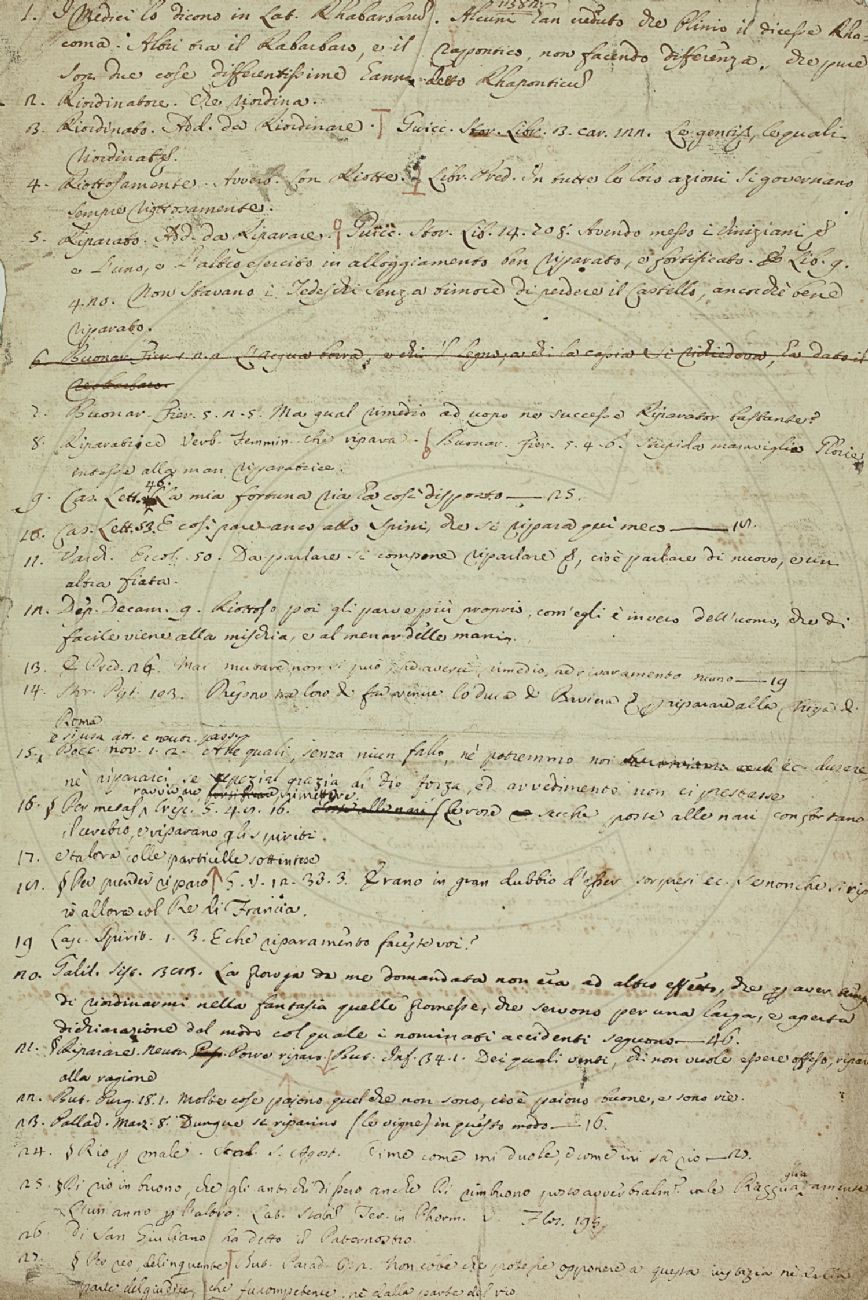 1. I Medici lo dicono in Lat. Rhabarbarum. Alcuni han creduto che Plinio il dicesse Rha-
coma. Altri tra il Rabarbaro, e il Rapontico, non facendo differenza, che pure
son due cose differentissime hanno detto Rhaponticum
2. Riordinatore. Che riordina.
3. Riordinato. Ad. da Riordinare. Guicc. Stor. Libr. 3. car. 122. Le genti, le quali
riordinate.
4. Riottosamente. Avverb. Con Riotta. Libr. Pred. In tutte le loro azioni si governano
sempre riottosamente.
5. Riparato. Ad. da Riparare. Guicc. Stor. Lib. 14. 708. Avendo messo i
e l'uno, e l'altro esercito in alloggiamento ben riparato, e fortificato. Lib. 9.
420. Non stavano i Tedeschi senza timore di perdere il Castello, ancorchè bene
riparato.
6. Buonar. Fier. a chi il legno, a chi la cassia
7. Buonar. Fier. 5. 2. 5. Ma qual rimedio ad uopo ne successe Riparator bastante?
8. Riparatrice Verb. Femmin. che ripara. Buonar. Fier. 5. 4. 6. Stupida maraviglia
intesse alla man riparatrice.
9. Car. Lett. 46. La mia fortuna ria ha così disposto — 25.
10. Car. Lett. 53. E così pare anco allo Spini, che si ripara qui meco — 18.
11. Varch. Ercol. 50. Da parlare si compone riparlare, cioè parlare di nuovo, e un
altra fiata.
12. Dep. Decam. 9. Riottoso poi gli parve più proprio, com'egli è invero dell'uomo, che di
facile viene alla mischia, e al menar delle mani.
13. Pred. 26. Mai mutare non si può, nè averci rimedio, nè riparamento niuno — 19
14. Str. Pgt. 103. il duca di Baviera riparare alla di
Roma
e si usa att. e neutr. pass.
15. Bocc. nov. 1. 2. Alle quali, senza niun fallo, nè potremmo noi ec. durare,
nè ripararci, se spezial grazia di Dio forza, ed avvedimento non ci prestasse
16. § Per metaf. Cresc. 5. 49. 16. (le rose secche poste alle nari confortano
il cerebro, e riparano gli spiriti.
17. e talora colle particelle sottintese
18. § Per prender riparo G. V. 12. 33. 3. Erano in gran dubbio d'esser sorpresi ec. se non che si rip
allora col Re di Francia.
19 Lasc. Spirit. 1. 3. E che riparamento faceste voi?
20. Galil. Sist. La da me domandata non era ad altro effetto, che per aver
di riordinarmi nella fantasia quelle premesse, che servono per una larga, e aperta
dichiarazione del modo col quale i nominati accidenti seguono — 46.
21. § Riparare Neutr. Porre riparo. But. Inf. 34. 1. Dei quali venti, chi non vuole essere offeso, ripari
alla ragione
22. But. Purg. 18. 1. Molte cose pajono quel che non sono, cioè paiono buone, e sono rie.
23. Pallad. Marz. 8. Dunque si riparino (le vigne) in questo modo — 16.
24. § Rio per male. S. Agost. Dime come mi duole, e come mi sa rio — 2.
25. § Di rio in buono, che gli antichi dissero anche Di rimbuono posto avverbialm. vale Ragguagliatamente
l'un anno per l'altro. Lat.
26. Di San Giuliano ha detto il Paternostro.
27. § Per reo, delinquente But. Parad. Non ebbe che potesse opponere a questa iustizia nè dalla
parte del giudice, che fu competente, nè dalla parte del rio